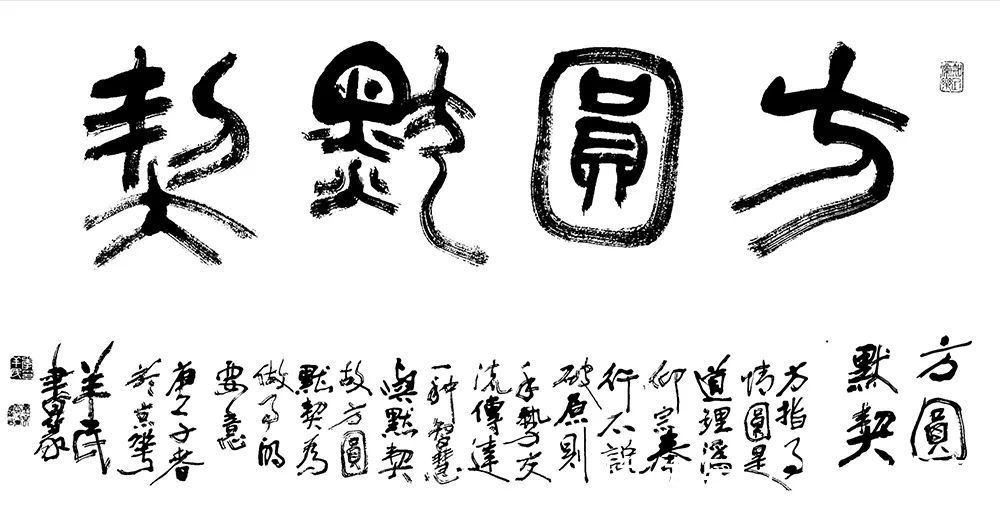 方圓默契
方圓
默契
方指事
情圓是
道理
仰宗奉
行不說
破原則
手勢交
流傳達
一種智慧
與默契
故方圓
默契為
做事的
要意
庚子春
於京
羊